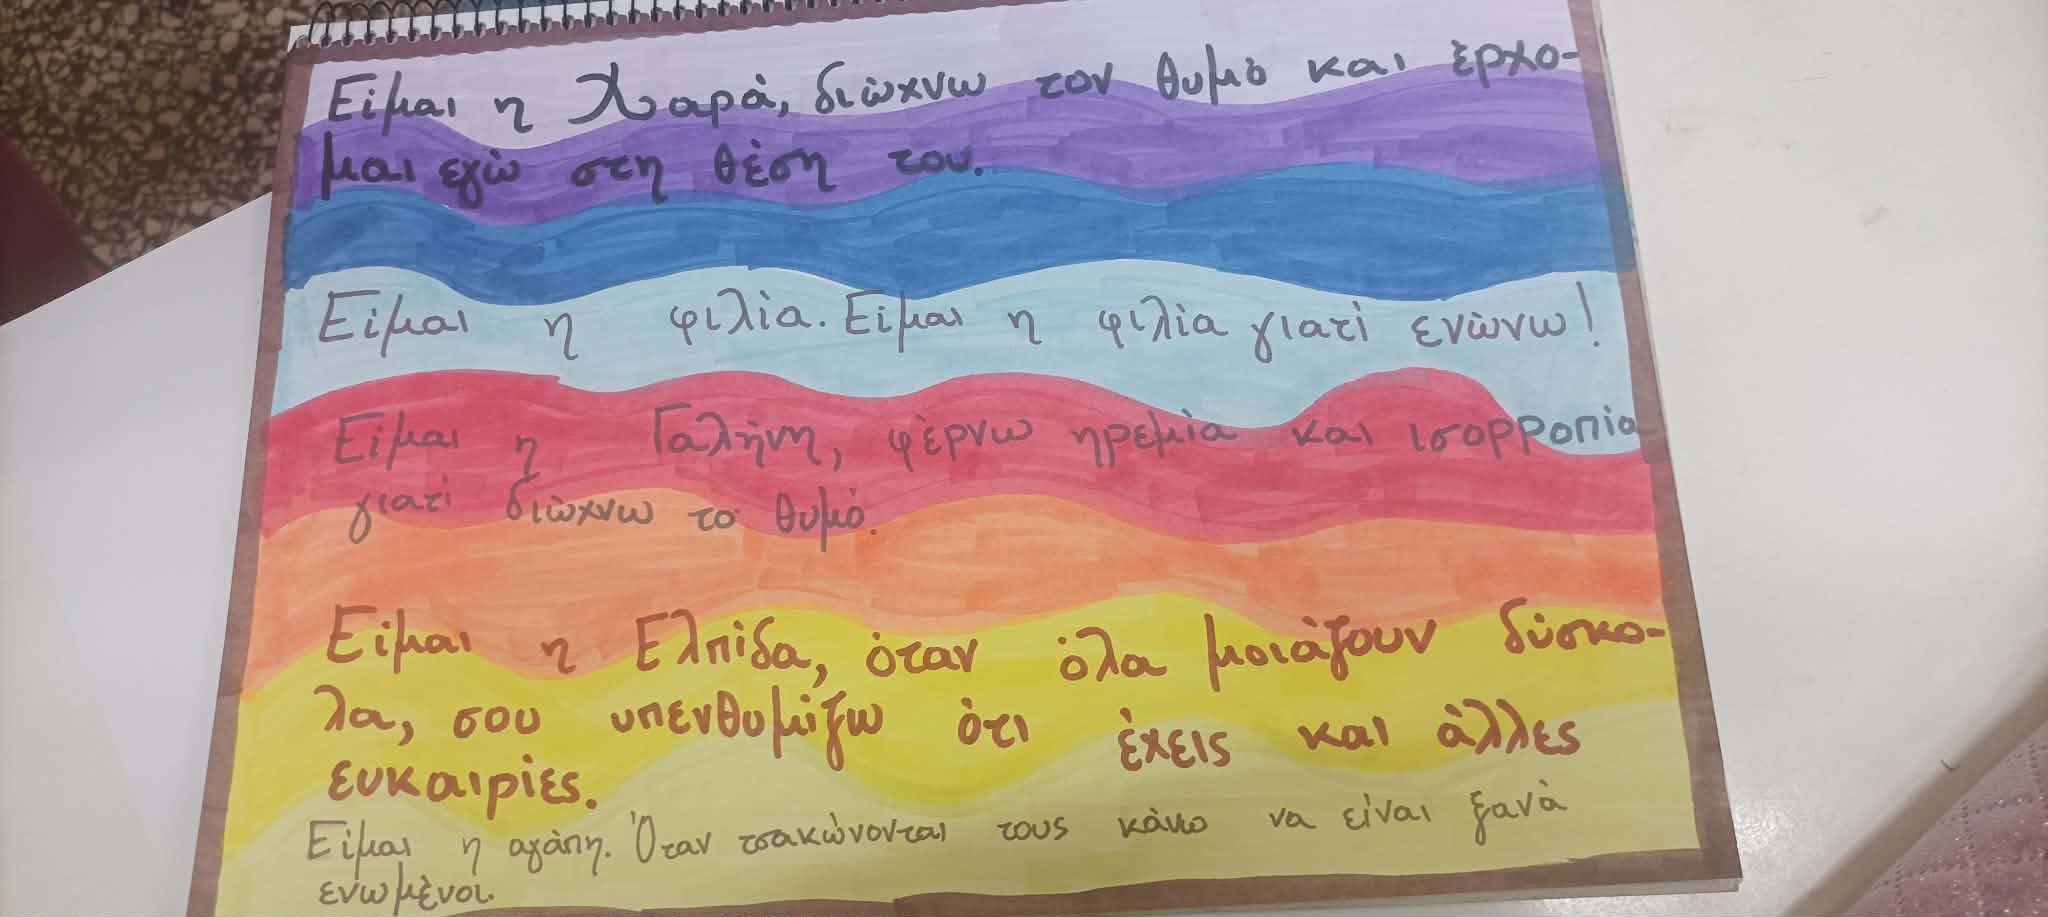 Είμαι η Χαρά, διώχνω τον θυμό και έρχο-
μαι εγώ στη θέση του.
Είμαι η φιλία. Είμαι η φιλία γιατί ενώνω!
Είμαι η Γαλήνη, φέρνω ηρεμία και ισορροπία
γιατί διώχνω το θυμό.
Είμαι η Ελπίδα, όταν όλα μοιάζουν δύσκο-
λα, σου υπενθυμίζω ότι έχεις και άλλες
ευκαιρίες.
Είμαι η αγάπη. Όταν τσακώνονται τους κάνω να είναι ξανά
ενωμένοι.